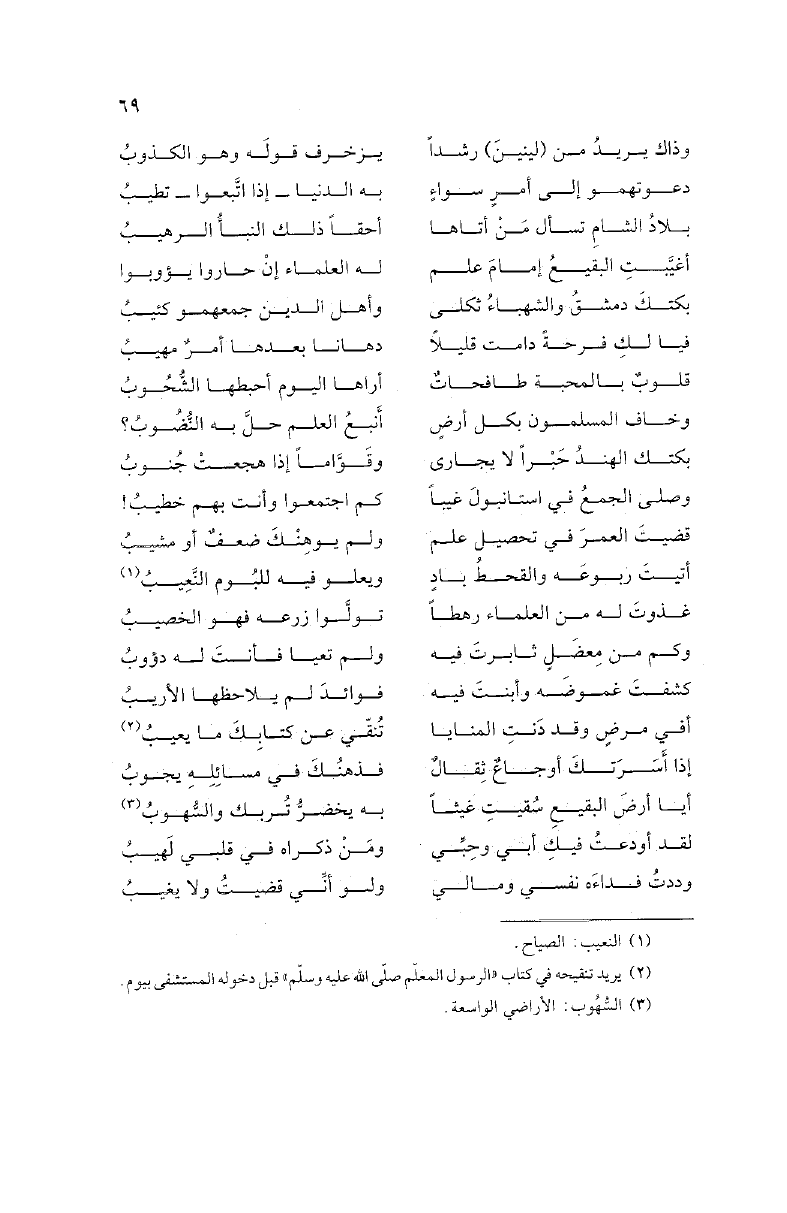 ٦٩
وذاك يريدُ من (لينينَ) رشداً يزخرف قولَه وهو الكذوبُ
دعوتهمو إلى أمرٍ سواءٍ به الدنيا ــ إذا اتَّبعوا ــ تطيبُ
بلادُ الشام تسأل مَنْ أتاها أحقاً ذلك النبأُ الرهيبُ
أغيَّبت البقيعُ إمامَ علمٍ له العلماء إن حاروا يؤوبوا
بكتك دمشقُ والشهباءُ ثكلى وأهل الدين جمعهمو كئيبُ
فيا لك فرحةً دامت قليلاً دهانا بعدها أمرٌ مهيبُ
قلوبٌ بالمحبة طافحاتٌ أراها اليوم أحبطها الشُّحُوبُ
وخاف المسلمون بكل أرضٍ أَنَبعُ العلم حلَّ به النُّضُوبُ؟
بكتك الهندُ حَبْراً لا يجارى وقوَّاماً إذا هجعتْ جُنوبُ
وصلى الجمعُ في استانبولَ غيباً كم اجتمعوا وأنت بهم خطيبُ!
قضيتَ العمرَ في تحصيل علمٍ ولم يوهنْكَ ضعفٌ أو مشيبُ
أتيتَ ربوعَه والقحطُ بادٍ ويعلو فيه للبُوم النَّعِيبُ(١)
غذوتَ له من العلماء رهطاً تولَّوا زرعه فهو الخصيبُ
وكم من معضلٍ ثابرتَ فيه ولم تعيا فأنتَ له دؤوبُ
كشفتَ غموضَه وأبنتَ فيه فوائدَ لم يلاحظها الأريبُ
أفي مرضٍ وقد دَنت المنايا تُنقّي عن كتابِكَ ما يعيبُ(٢)
إذا أَسَرَتكَ أوجاعٌ ثِقالٌ فذهنُكَ في مسائلِه يجوبُ
أيا أرضَ البقيعِ سُقيتِ غيثاً به يخضرُّ تُربك والسُّهوبُ(٣)
لقد أودعتُ فيكِ أبي وحِبِّي ومَنْ ذكراه في قلبي لَهيبُ
وددتُ فداءَه نفسي ومالي ولو أنَّي قضيتُ ولا يغيبُ
(١) النعيب: الصياح.
(٢) يريد تنقيحه في كتاب «الرسول المعلّم صلّى الله عليه وسلّم» قبل دخوله المستشفى بيوم.
(٣) السُّهُوب: الأراضي الواسعة.